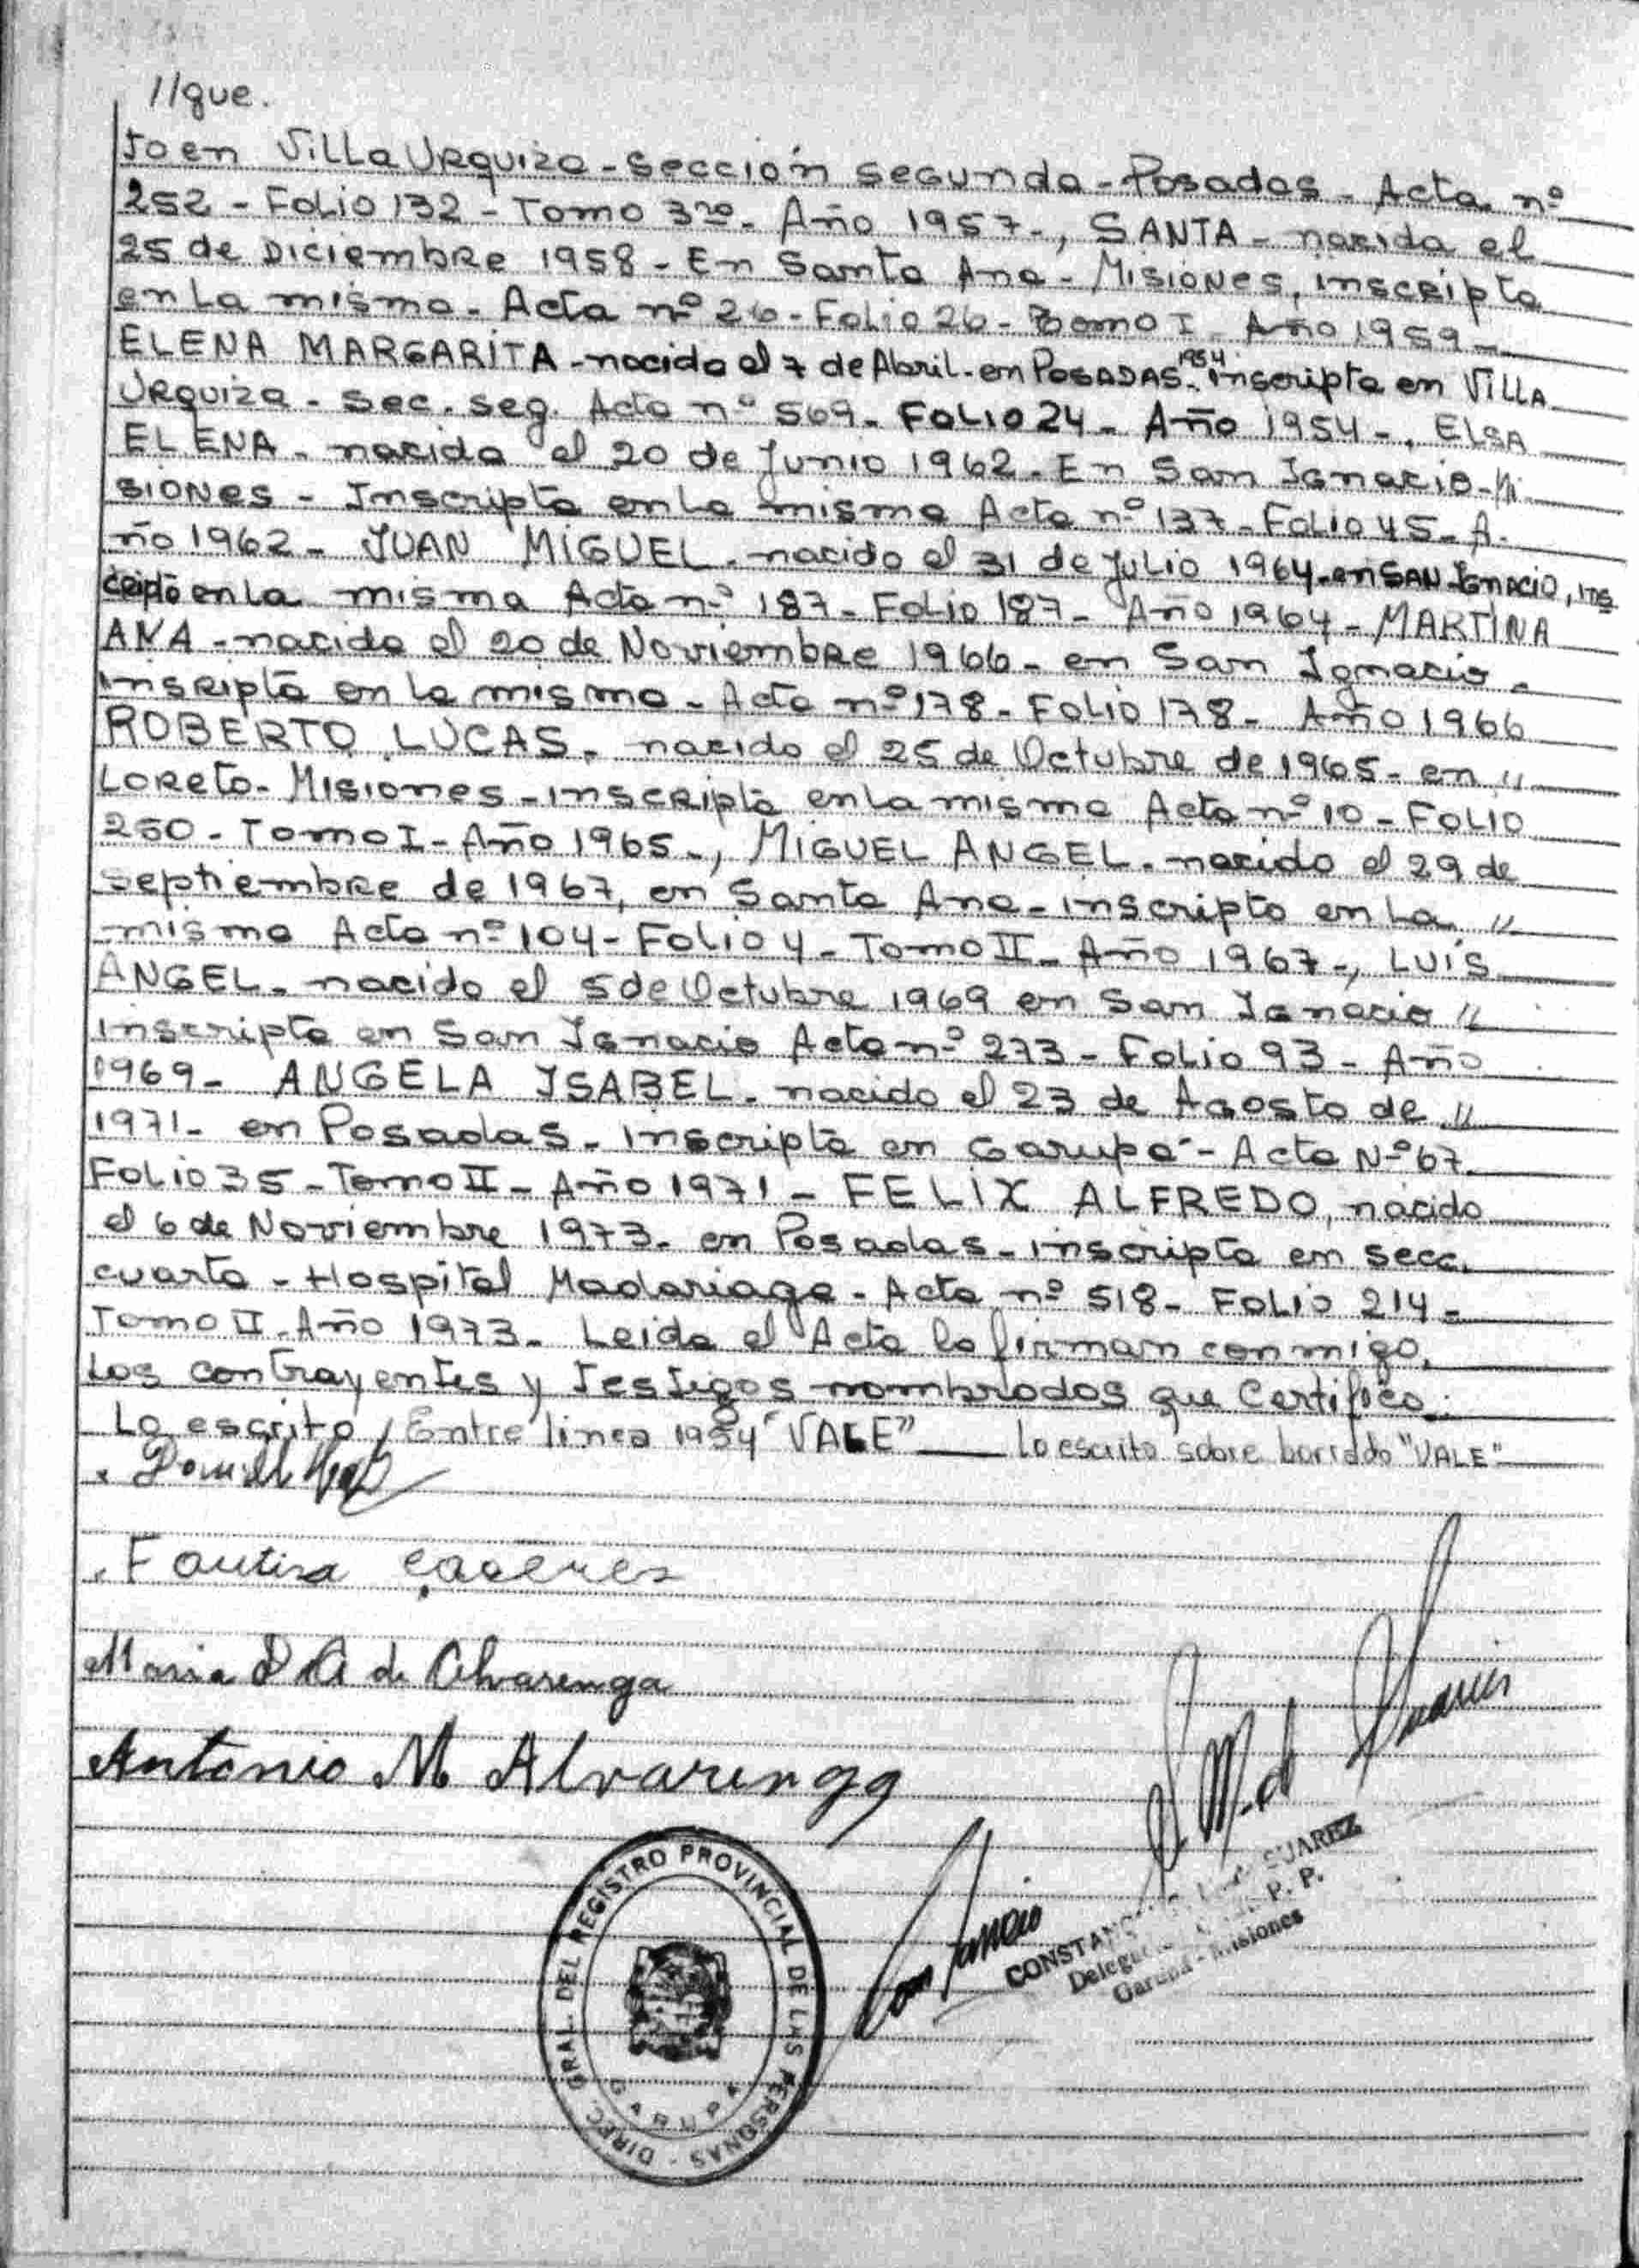 //que.
to en Villa Urquiza - Sección segunda - Posadas - Acta nº
252 - Folio 132 - Tomo 3ro - Año 1957 -, SANTA - nacida el
25 de Diciembre 1958 - En Santa Ana - Misiones, inscripta
en la misma - Acta nº 26 - Folio 26 - Tomo I - Año 1959 -
ELENA MARGARITA - nacida el 7 de Abril - en POSADAS - 1954 inscripta en Villa
Urquiza - Sec. seg. Acta nº 569 - Folio 24 - Año 1954 -, ELSA
ELENA - nacida el 20 de Junio 1962 - En San Ignacio - Mi
siones - Inscripta en la misma Acta nº 137 - Folio 45 - A
ño 1962 - JUAN MIGUEL - nacido el 31 de Julio 1964 - en SAN Ignacio, ins
cripto en la misma Acta nº 187 - Folio 187 - Año 1964 - MARTINA
ANA - nacida el 20 de Noviembre 1966 - en San Ignacio -
inscripta en la misma - Acta nº 178 - Folio 178 - Año 1966
ROBERTO LUCAS - nacido el 25 de Octubre de 1965 - en //
Loreto - Misiones - inscripto en la misma Acta nº 10 - Folio
250 - Tomo I - Año 1965 -, MIGUEL ANGEL - nacido el 29 de
Septiembre de 1967, en Santa Ana - inscripto en la //
misma Acta nº 104 - Folio 4 - Tomo II - Año 1967 -, LUIS
ANGEL - nacido el 5 de Octubre 1969 en San Ignacio //
inscripto en San Ignacio Acta nº 273 - Folio 93 - Año
1969 - ANGELA ISABEL - nacida el 23 de Agosto de //
1971 - en Posadas - inscripta en Garupá - Acta Nº 67
Folio 35 - Tomo II - Año 1971 - FELIX ALFREDO, nacido
el 6 de Noviembre 1973 - en Posadas - inscripto en secc.
cuarta - Hospital Madariaga - Acta nº 518 - Folio 214 -
Tomo II - Año 1973 - Leida el Acta la firman conmigo,
los contrayentes y testigos nombrados que certifico.
Lo escrito, Entre linea 1954 "VALE" lo escrito sobre borrado "VALE"
Fautina Caceres
Maria de Alvarenga
Antonio M Alvarenga
Constancio Suarez
CONSTANCIO SUAREZ
P. P.
Garupá - Misiones
DIREC. GRAL. DEL REGISTRO PROVINCIAL DE LAS PERSONAS - GARUPA